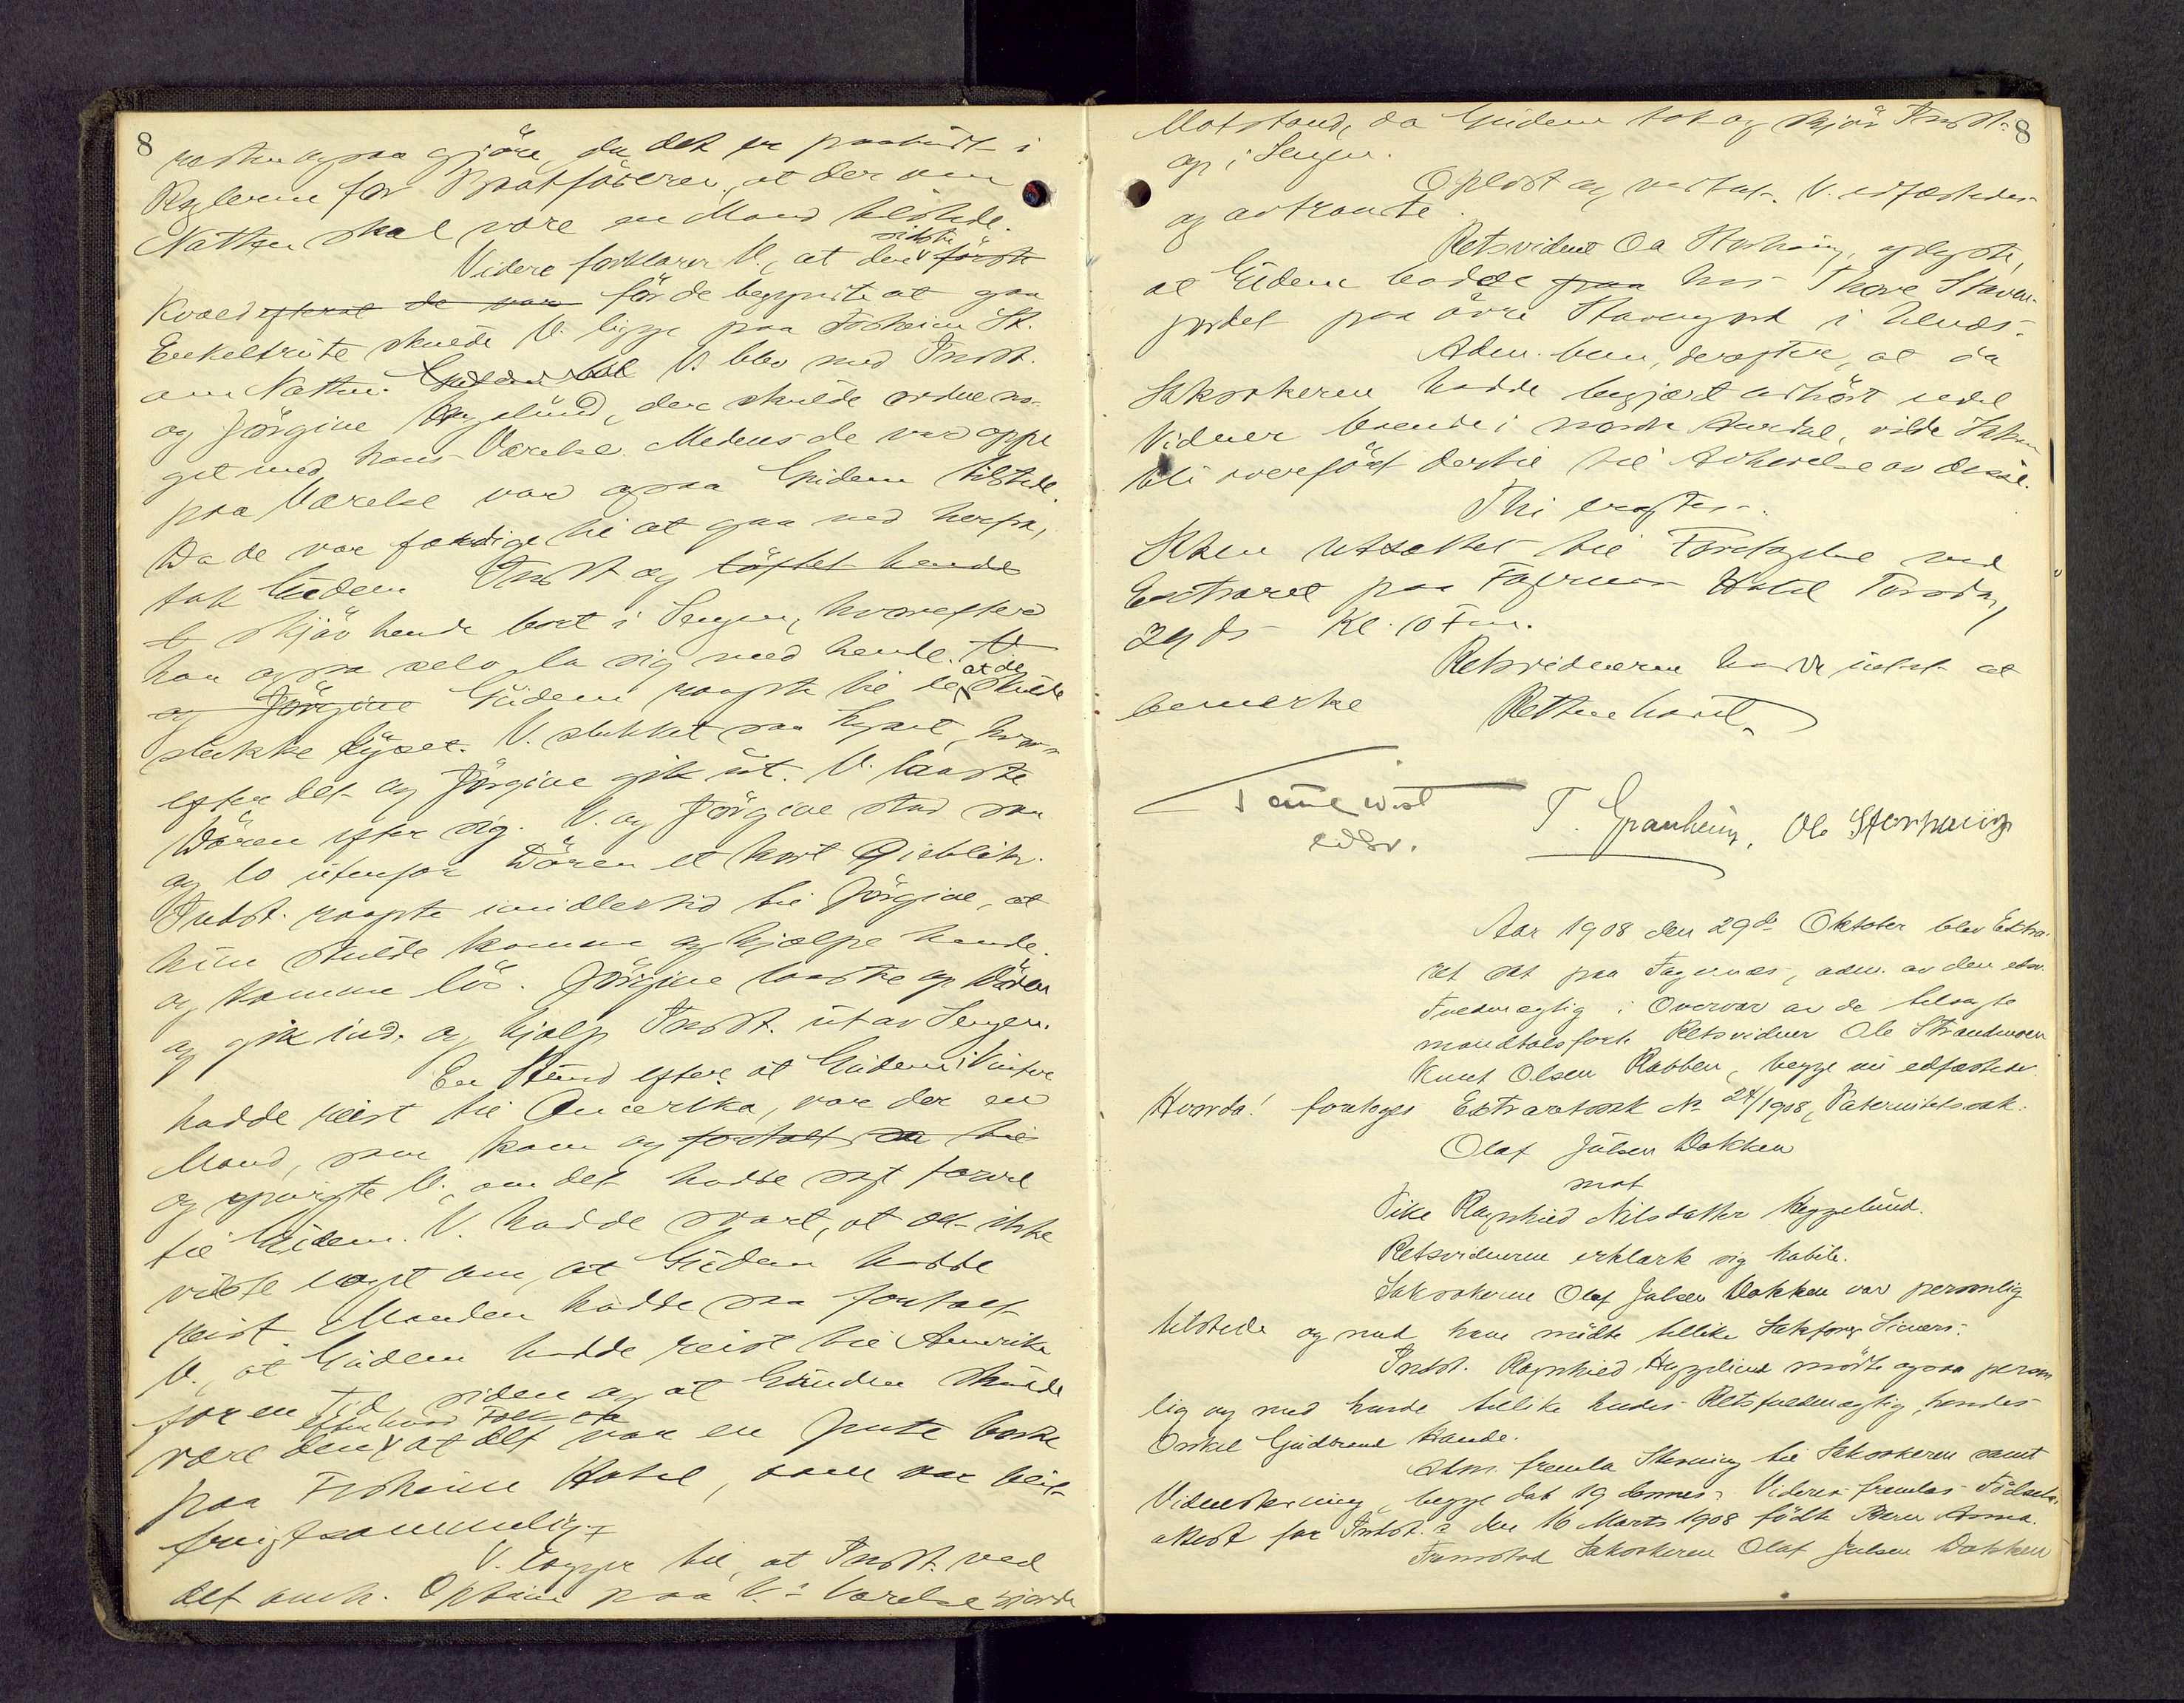 8
ogsaa gjöre, da det er paabudt i
Reglerne for at der om
Natten skal være en Mand tilstede.
Videre forklarer V., at den sidste første
Kveld efterat da var för de begyndte at gaa
Enkeltrute skulde V. ligge paa Fosheim St.
om Natten. V. blev med Indst.
og Jörgine Hegelund, der skulde ordne no-
get med hans Værelse. Medens de var oppe
paa Værelse var ogsaa Gudem tilstede.
Da de var færdige til at gaa ned herfra,
tok Gudem Indst og löftet hende
skjöv hende bort i Sengen, hvorefter
han ogsaa selv la sig med hende. V
og Jörgine Gudem raapte til at de skulde
slukke lyset. V. slukket saa lyset, hvor-
efter det og Jörgine gik ut. V. laaste
Dören efter sig. V. og Jörgine stod saa
og lo utenfor Dören et kort Øieblik.
Indst. raapte imidlertid til Jörgine, at
hun skulde komme og hjælpe hende
og komme lös. Jörgine laaste op Dören
og gik ind og hjalp Indst. ut av Sengen.
En Stund efter at Gudem i Vinter
hadde reist til Amerika, var der en
Mand, som kom og fortalt til
og spurgte V., om det hadde sagt farvel
til Gudem. V. hadde svart, at det ikke
vidste noget om, at Gudem hadde
reist. Manden hadde saa fortalt
V., at Gudem hadde reist til Amerika
for en Tid siden og at Grunden skulde
være den, efter hvad Folk sa at det var en Jente borte
paa Fosheim Hotel, som var blit
frugtsommelig.
V. lægger til, at Indst. ved
det omh. Optrin paa V.s Værelse gjorde
8
Motstand, da Gudem tok og skjöv Indst.
op i Sengen.
Oplæst og vedtat. V. edfæstedes
og avtraadte.
Retsvidne Ole Storhaug oplyste,
at Gudem hadde paa hos Thore Staven-
jordet paa övre Stavenjord i
Adm. bem. derefter, at da
Saksökeren hadde begjært avhört endel
Vidner boende i nordre Aurdal, vilde Saken
bli overfört dertil til Avhörelse av disse.
Thi eragtes:
Saken utsættes til Foretagelse ved
Extraret paa Fagernes Hotel Torsdag
29 ds Kl. 10 Fm.
Retsvidnerne hadde intet at
bemerke
Retten hævet.
edsv.
T. Granheim, Ole Storhaug
Aar 1908 den 29de Oktober blev Extra-
ret sat paa Fagernes, adm. av den edsv.
Fuldmægtig i Overvær av de tilsagte
mandtalsförte Retsvidner Ole Strandmoen
Knut Olsen Robben, begge nu edfæstede.
Hvorda! foretoges Extraretssak No 24/1908, Paternitetssak:
Olaf Julsen Dokken
mot
Pike Ragnhild Nilsdatter Heggelund.
Retsvidnerne erklærte sig habile.
Saksökeren Olaf Julsen Dokken var personlig
tilstede og med ham mödte tillike Sakförer
Indst. Ragnhild Heggelund mödte ogsaa person
lig og med hende tillike hendes Retsfuldmægtig, hendes
Onkel Gudbrand Hande.
Adm. fremla Stevning til Saksökeren samt
Vidnestevning, begge dat 19 dennes. Videre fremlas Födsels-
attest for Indst.s den 16 Marts 1908 födte Barn Anna.
Fremstod Saksökeren Olaf Julsen Dokken